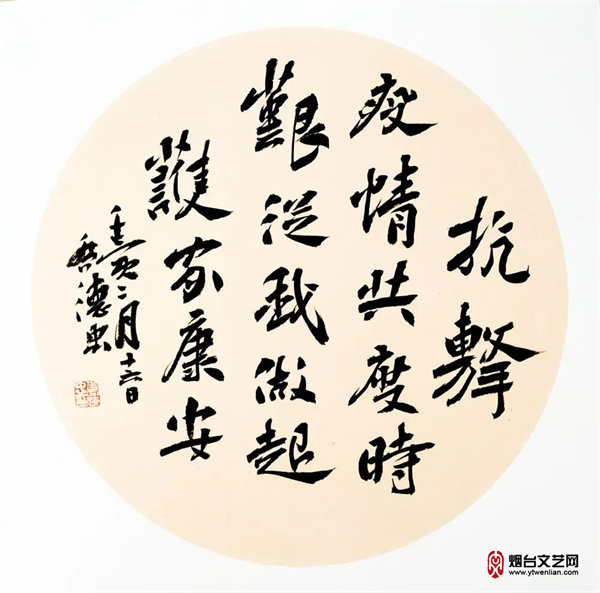 抗擊
疫情共度時
艱從我做起
護家康安
壬寅二月十六日
德
烟台文艺网
www.ytwenlian.com